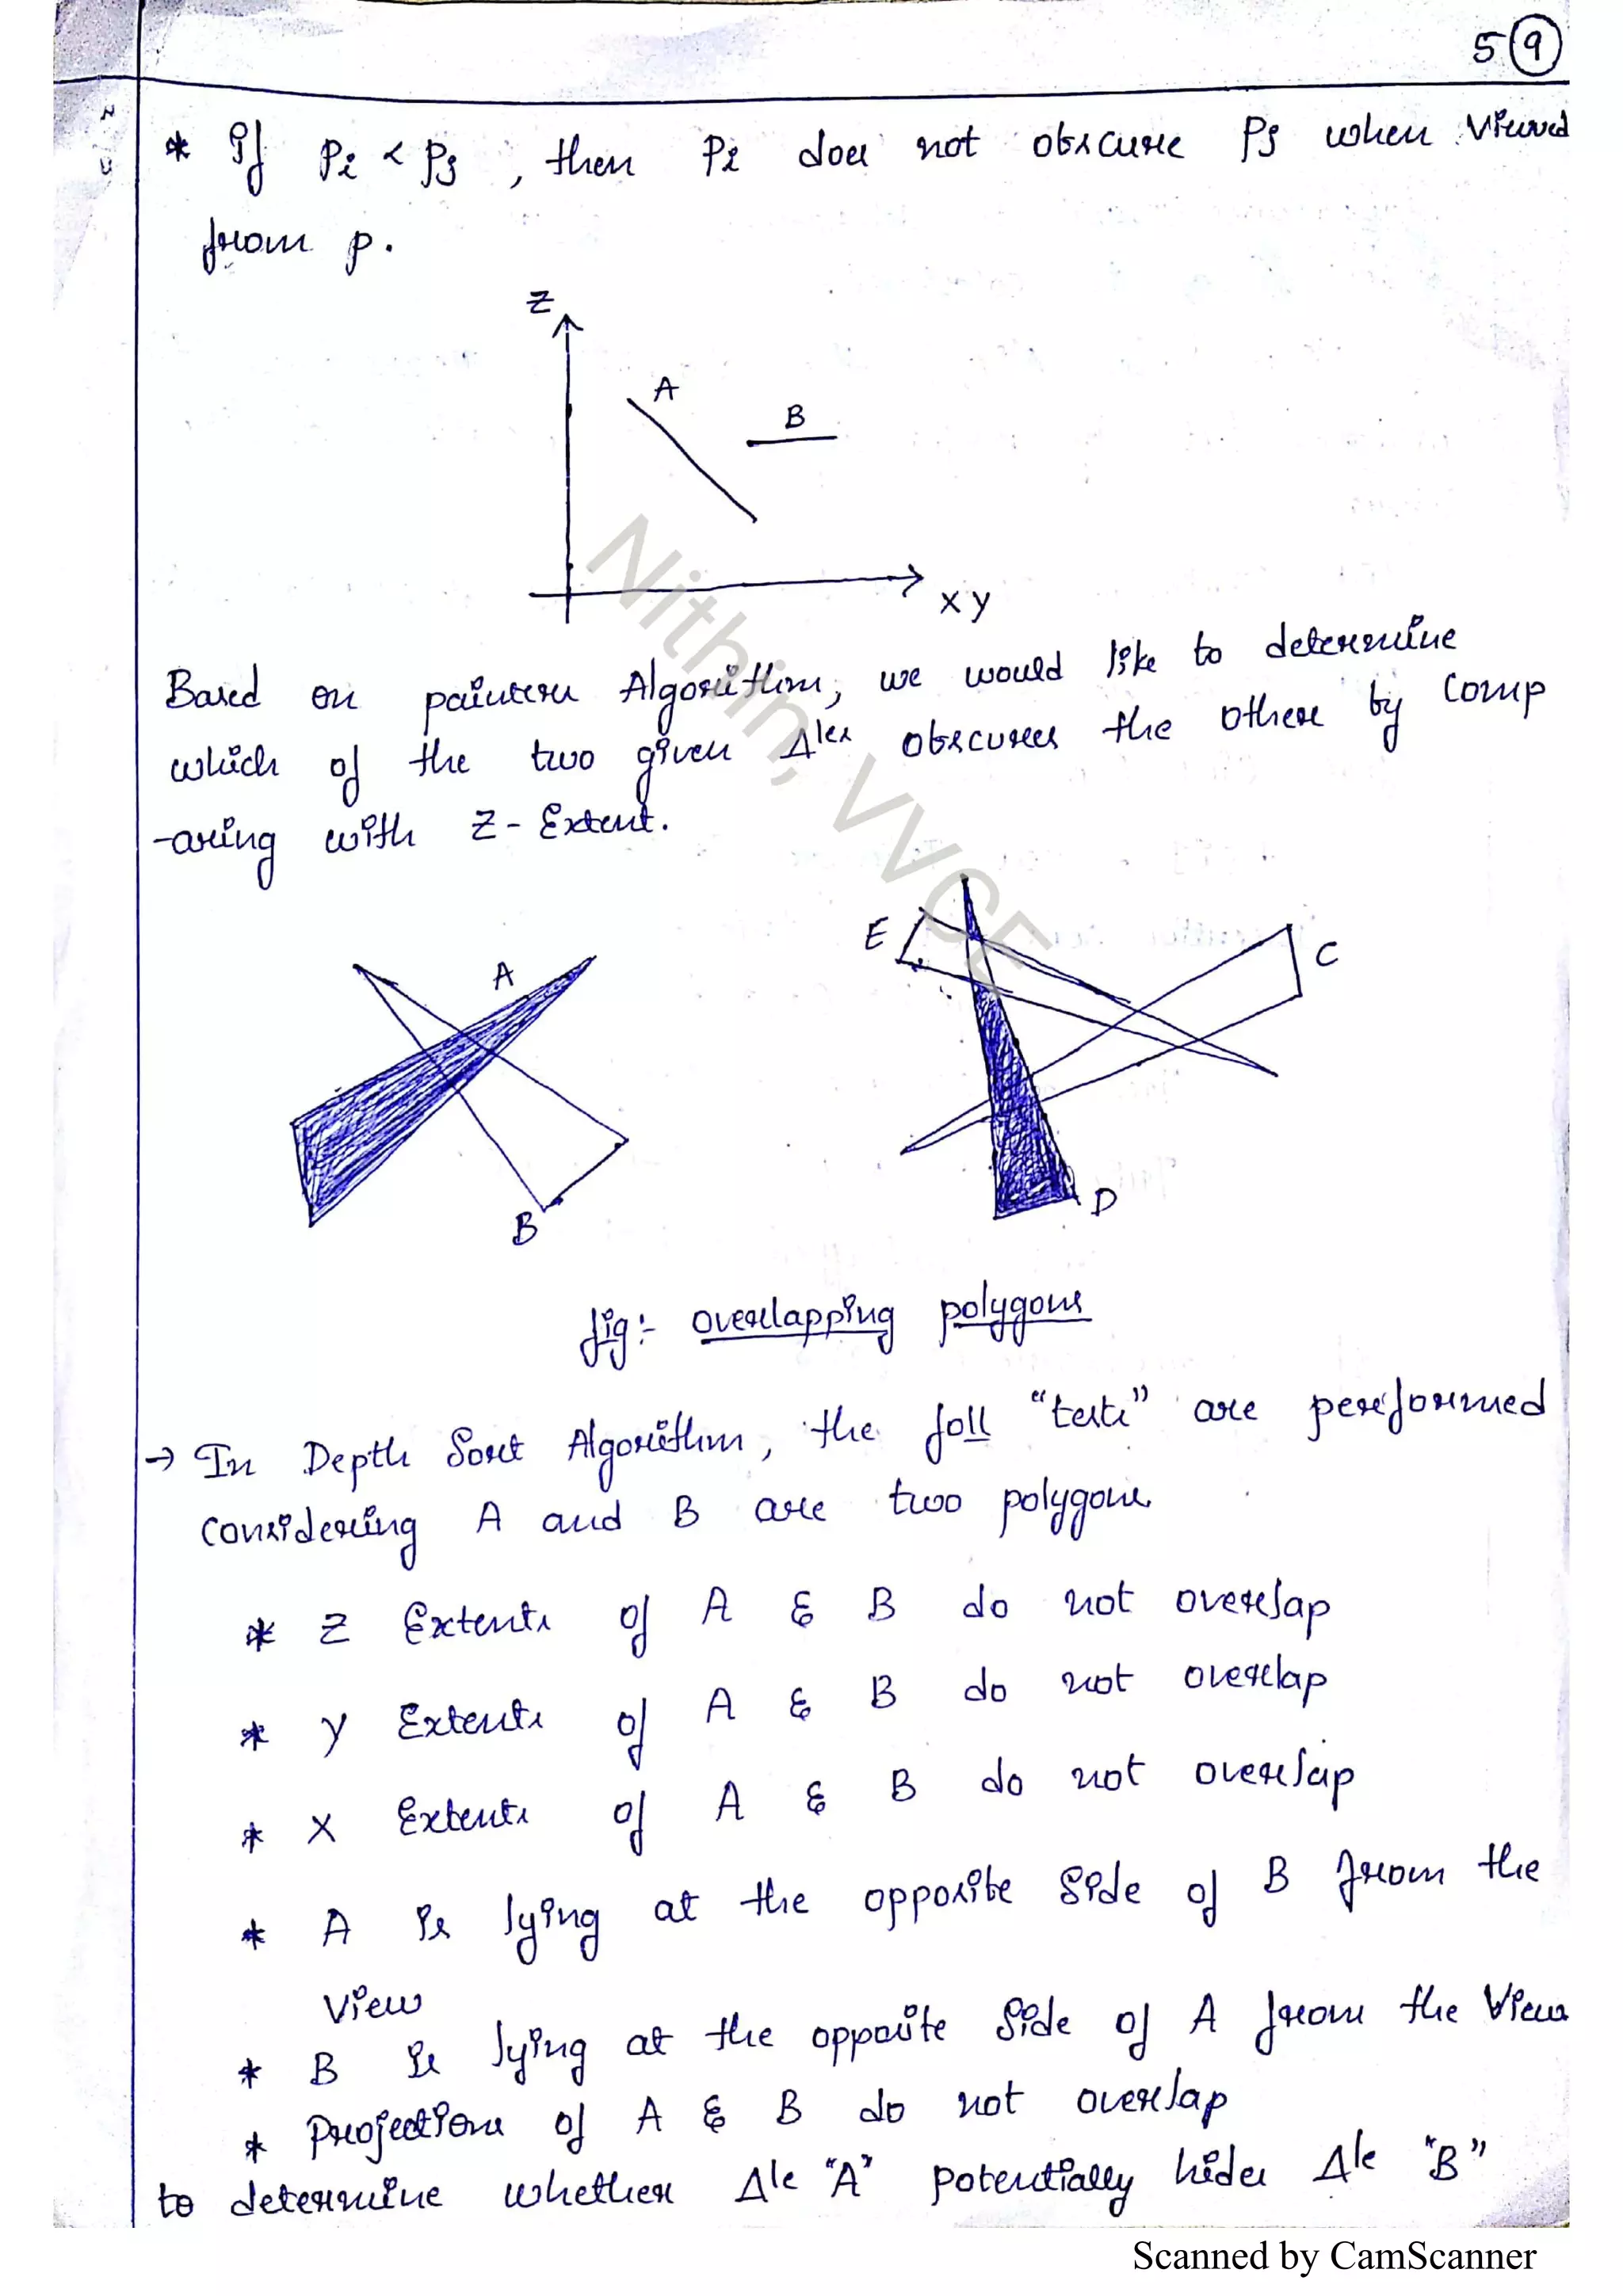 5 9
* If Pi < Pj , then Pi does not obscure Pj when viewed
from p.
Z
A
B
X Y
Based on painters Algorithm, we would like to determine
which of the two given Δles obscures the other by comp
-aring with Z - Extent.
E
C
A
B
D
fig:- overlapping polygons
→ In Depth Sort Algorithm, the foll "tests" are performed
considering A and B are two polygons
* Z Extents of A & B do not overlap
* Y Extents of A & B do not overlap
* X Extents of A & B do not overlap
* A is lying at the opposite side of B from the
View
* B is lying at the opposite side of A from the View
* Projections of A & B do not overlap
to determine whether Δle "A" potentially hides Δle "B"
Nithin, VVCE
Scanned by CamScanner